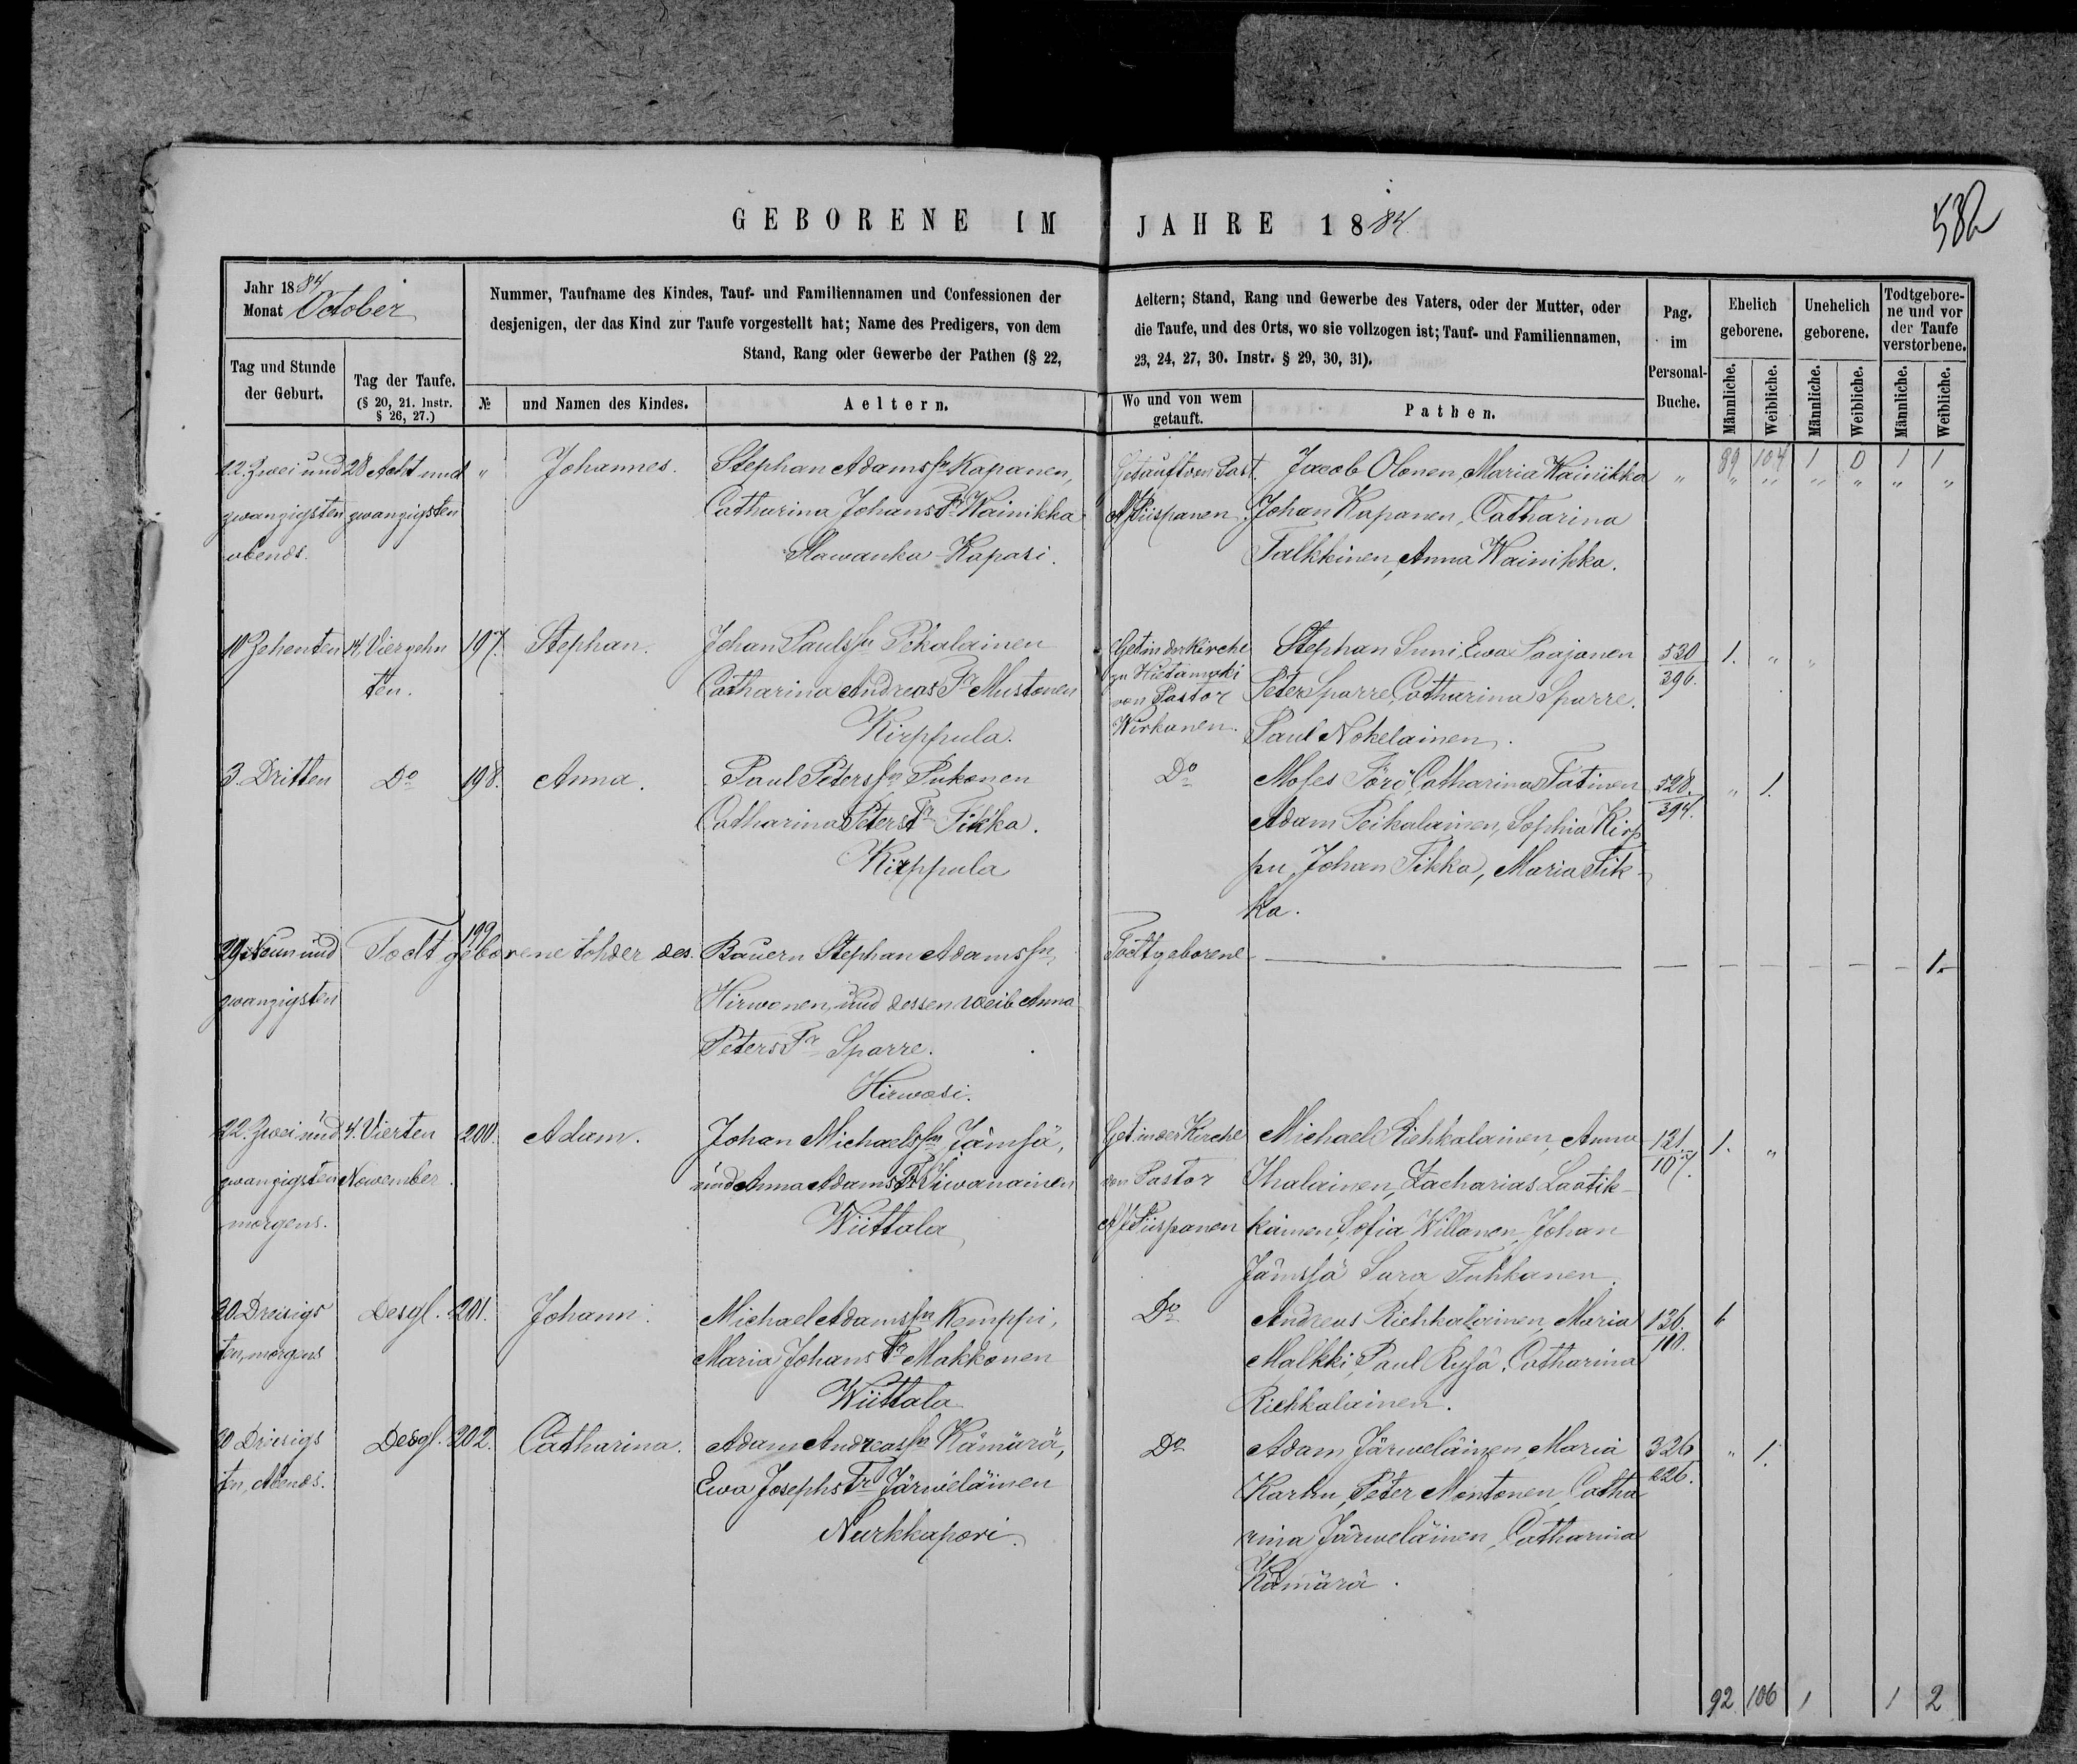 GEBORENE IM JAHRE 1884.
582
Jahr 1884
Monat October
Nummer, Taufname des Kindes, Tauf- und Familiennamen und Confessionen der
desjenigen, der das Kind zur Taufe vorgestellt hat; Name des Predigers, von dem
Stand, Rang oder Gewerbe der Pathen (§ 22,
Aeltern; Stand, Rang und Gewerbe des Vaters, oder der Mutter, oder
die Taufe, und des Orts, wo sie vollzogen ist; Tauf- und Familiennamen,
23, 24, 27, 30. Instr. § 29, 30, 31).
Pag.
im
Personal-
Buche.
Ehelich
geborene.
Unehelich
geborene.
Todtgebore-
ne und vor
der Taufe
verstorbene.
Tag und Stunde
der Geburt.
Tag der Taufe.
(§ 20, 21. Instr.
§ 26, 27.)
№
und Namen des Kindes.
Aeltern.
Wo und von wem
getauft.
Pathen.
Männliche.
Weibliche.
Männliche.
Weibliche.
Männliche.
Weibliche.
22. Zwei und 28 Acht und " Johannes. Stephan Adamssn Kapanen, Getauft von Past. Jacob Olonen, Maria Wainikka " 89 104 1 0 1 1
zwanzigsten zwanzigsten Catharina Johans Tr Wainikka Piispanen. Johan Kapanen, Catharina " " " " " "
abends. Slawanka Kapasi. Talkkinen, Anna Wainikka.
10 Zehenten 14 Vierzehn 197. Stephan. Johan Paulssn Pekalainen Get in der Kirche Stephan Suni, Ewa Paajanen 530 1. " "
ten. Catharina Andreas Tr Mustonen zu Hietamäki Peter Sparre, Catharina Sparre. 396.
von Pastor
Kirppula. Wirkanen. Paul Nokelainen.
3. Dritten Do 198. Anna. Paul Peterssn Pukonen Do Moses Törö, Catharina Tatinen 528. " 1.
Catharina Peters Tr Tikka. Adam Peikalainen, Sophia Kirp 394.
Kirppula pu, Johan Tikka, Maria Tik-
ka.
199
29 Neun und Todt geborene tohder des. Bauern Stephan Adamssn, Todtgeborene — — — — — — 1.
zwanzigsten Hirwonen, und dessen weib Anna
Peters Tr Sparre.
Hirwosi.
22. Zwei und 4. Vierten 200. Adam. Johan Michaelssn Jämsä, Get. in der Kirche Michael Riehkalainen, Anna 131. 1. "
zwanzigsten November. und Anna Adams Tr Siwanainen von Pastor Ihalainen, Zacharias Laatik- 107.
morgens. Wiittala Piispanen kainen, Sofia Willanen, Johan
Jämsä Sara Tuhkanen.
30 Dreisigs Desgl. 201. Johann. Michael Adamssn Kemppi, Do Andreas Riehkalainen, Maria 136. 1
ten, morgens Maria Johans Tr Makkonen Malkki, Paul Rysä, Catharina 110.
Wiittala Riehkalainen.
30 Driesigs Desgl. 202. Catharina. Adam Andreassn Kämärä, Do Adam Järweläinen, Maria 326 " 1.
ten, Abends. Ewa Josephs Tr Järweläinen Karhu, Peter Montonen, Catha 226.
Nurkkapori. rina Järweläinen, Catharina
Kämärä.
92 106 1 1 2